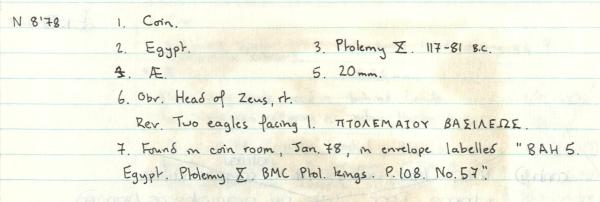 N 8'78. 1. Coin.
2. Egypt. 3. Ptolemy X. 117-81 B.C.
4. Æ. 5. 20mm.
6. Obv. Head of Zeus, rt.
Rev. Two eagles facing l. ΠΤΟΛΕΜΑΙΟΥ ΒΑΣΙΛΕΩΣ.
7. Found in coin room, Jan. 78, in envelope labelled "BAH 5.
Egypt. Ptolemy X. BMC Ptol. kings. P.108. No.57".